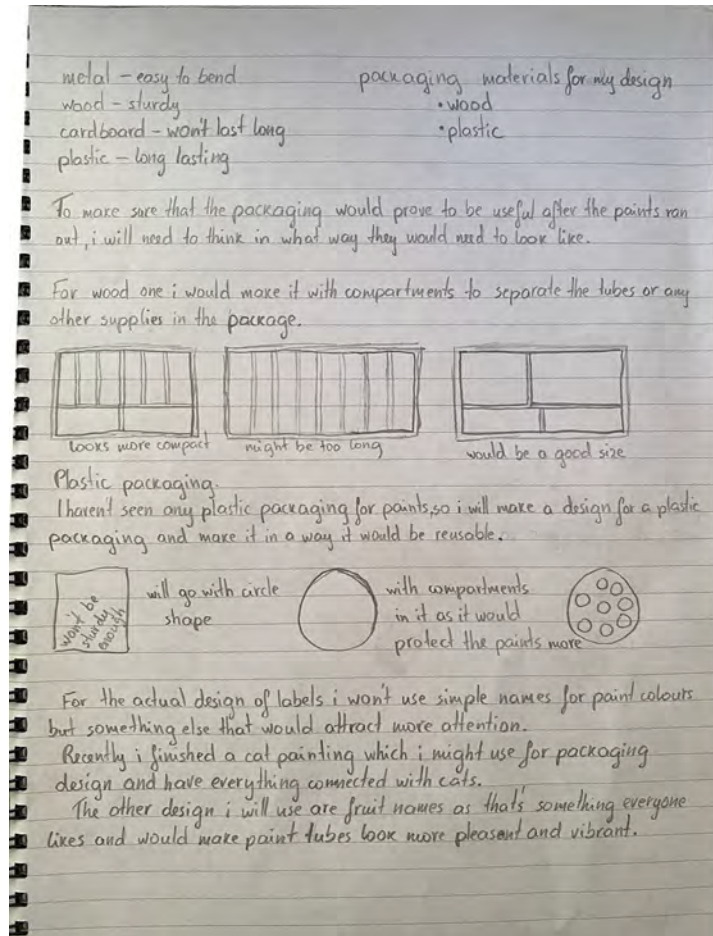 metal – easy to bend
wood – sturdy
cardboard – won't last long
plastic – long lasting
packaging materials for my design
• wood
• plastic
To make sure that the packaging would prove to be useful after the paints ran
out, i will need to think in what way they would need to look like.
For wood one i would make it with compartments to separate the tubes or any
other supplies in the package.
looks more compact
might be too long
would be a good size
Plastic packaging.
I havent seen any plastic packaging for paints, so i will make a design for a plastic
packaging and make it in a way it would be reusable.
won't be
sturdy
enough
will go with circle
shape
with compartments
in it as it would
protect the paints more
For the actual design of labels i won't use simple names for paint colours
but something else that would attract more attention.
Recently i finished a cat painting which i might use for packaging
design and have everything connected with cats.
The other design i will use are fruit names as that's something everyone
likes and would make paint tubes look more pleasent and vibrant.